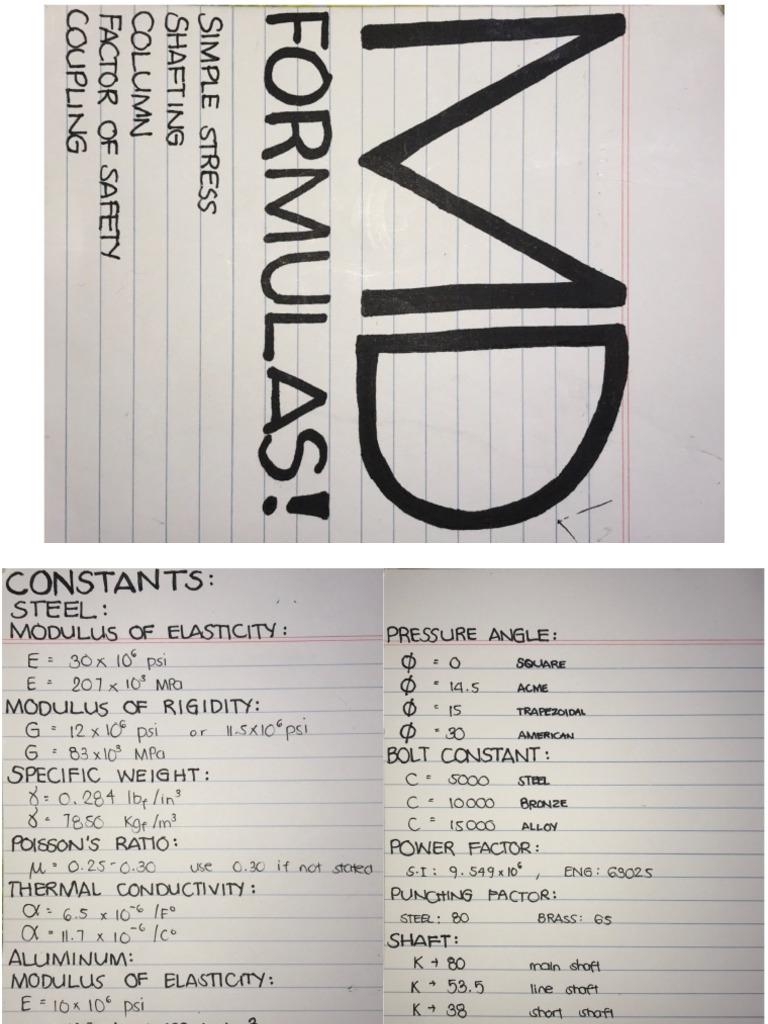 MD
FORMULAS!
SIMPLE STRESS
SHAFTING
COLUMN
FACTOR OF SAFETY
COUPLING
CONSTANTS:
STEEL:
MODULUS OF ELASTICITY:
E = 30 x 10⁶ psi
E = 207 x 10³ MPa
MODULUS OF RIGIDITY:
G = 12 x 10⁶ psi or 11.5x10⁶ psi
G = 83 x 10³ MPa
SPECIFIC WEIGHT:
γ = 0.284 lbf /in³
γ = 7850 Kgf /m³
POISSON'S RATIO:
μ = 0.25-0.30 use 0.30 if not stated
THERMAL CONDUCTIVITY:
α = 6.5 x 10⁻⁶ /F°
α = 11.7 x 10⁻⁶ /C°
ALUMINUM:
MODULUS OF ELASTICITY:
E = 10 x 10⁶ psi
PRESSURE ANGLE:
φ = 0 SQUARE
φ = 14.5 ACME
φ = 15 TRAPEZOIDAL
φ = 30 AMERICAN
BOLT CONSTANT:
C = 5000 STEEL
C = 10000 BRONZE
C = 15000 ALLOY
POWER FACTOR:
S.I: 9.549 x 10⁶ , ENG: 63025
PUNCHING FACTOR:
STEEL: 80 BRASS: 65
SHAFT:
K → 80 main shaft
K → 53.5 line shaft
K → 38 short shaft